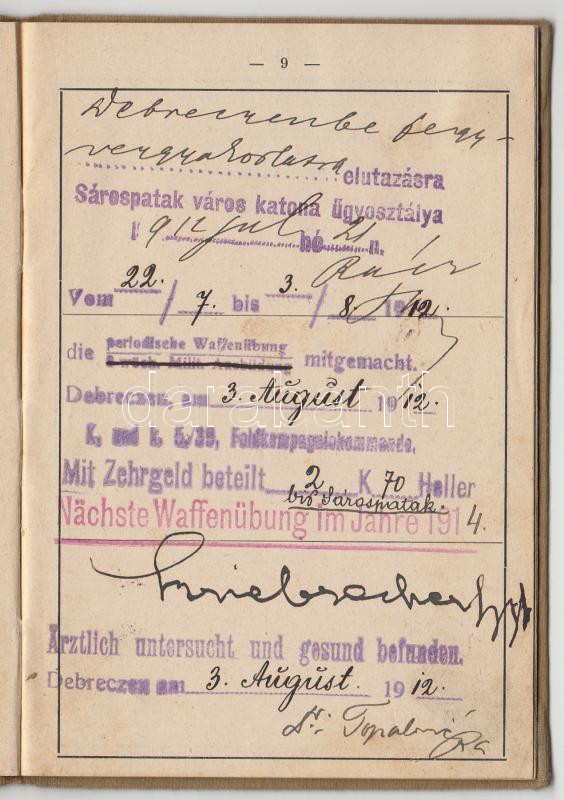 — 9 —
Debreczenbe fegy-
vergyakorlatra
elutazásra
Sárospatak város katona ügyosztálya
1912 Jul hó 21 n.
Rácz
Vom 22. / 7. bis 3. / 8. 1912.
die periodische Waffenübung mitgemacht.
3 wöch. Milit. Ausbildung
Debreczen, am 3. August 1912.
K. und k. 5/39, Feldkompagniekommando.
Mit Zehrgeld beteilt 2 K 70 Heller
bis Sárospatak.
Nächste Waffenübung im Jahre 1914.
Ärztlich untersucht und gesund befunden.
Debreczen am 3. August. 1912.
Dr.
darabanth